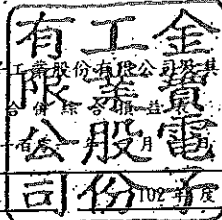 金寶電子
工業股份
有限公司
工業股份有限公司及其
合併綜合損益
月
102 年度